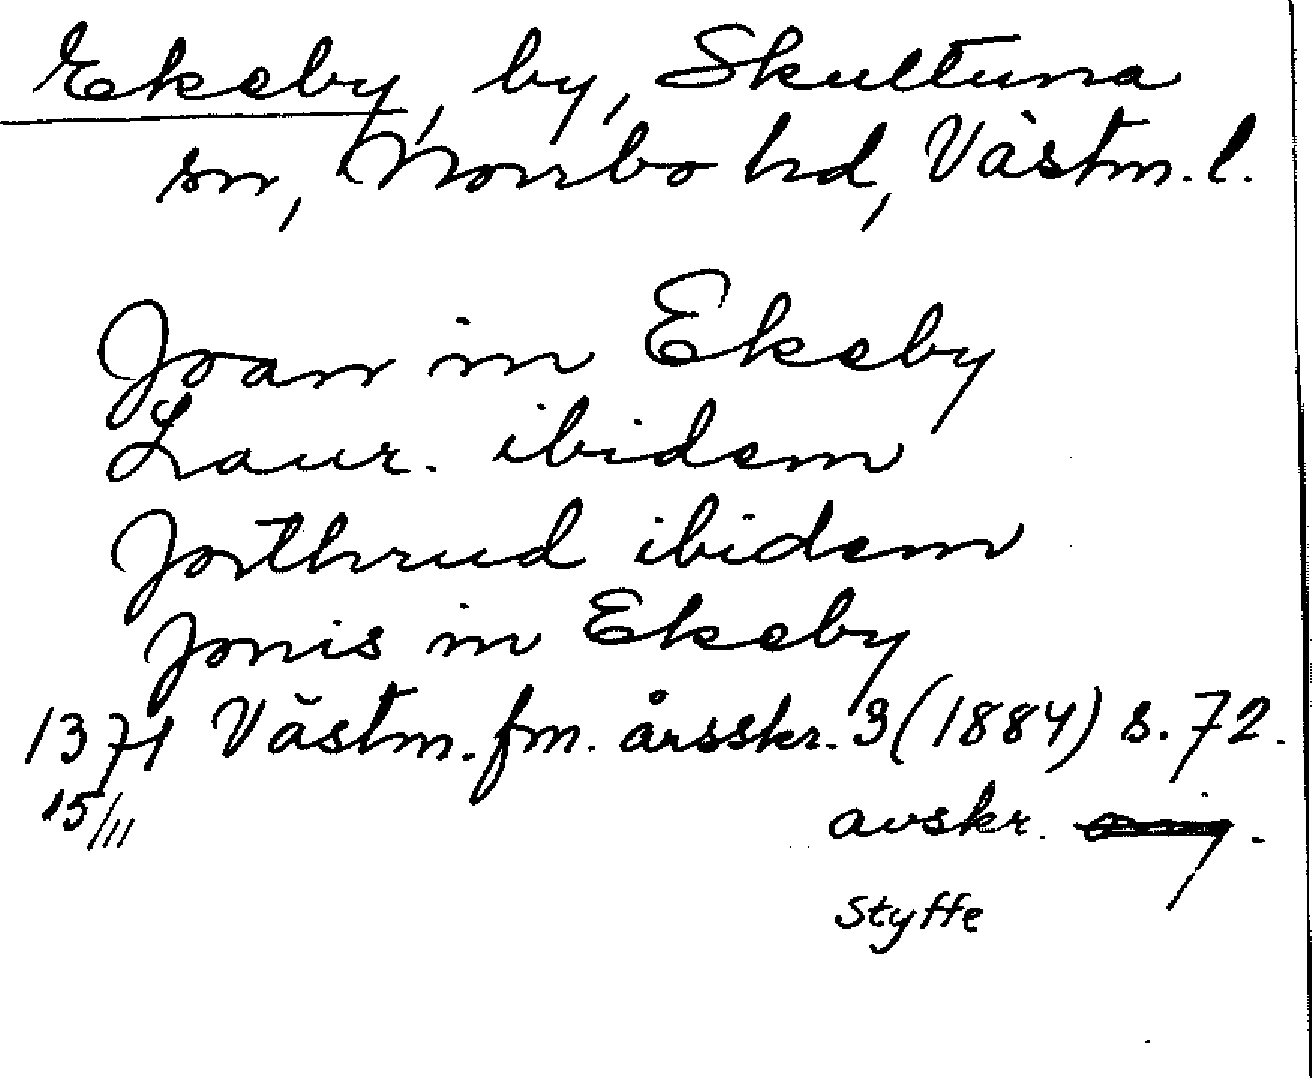 Ekeby, by, Skultuna
sn, Norrbo hd, Västm. l.
Joan in Ekeby
Laur. ibidem
Jorthrud ibidem
Jonis in Ekeby
1371 Västm. fm. årsskr. 3 (1884) s. 72.
15/11
avskr. orig.
Styffe